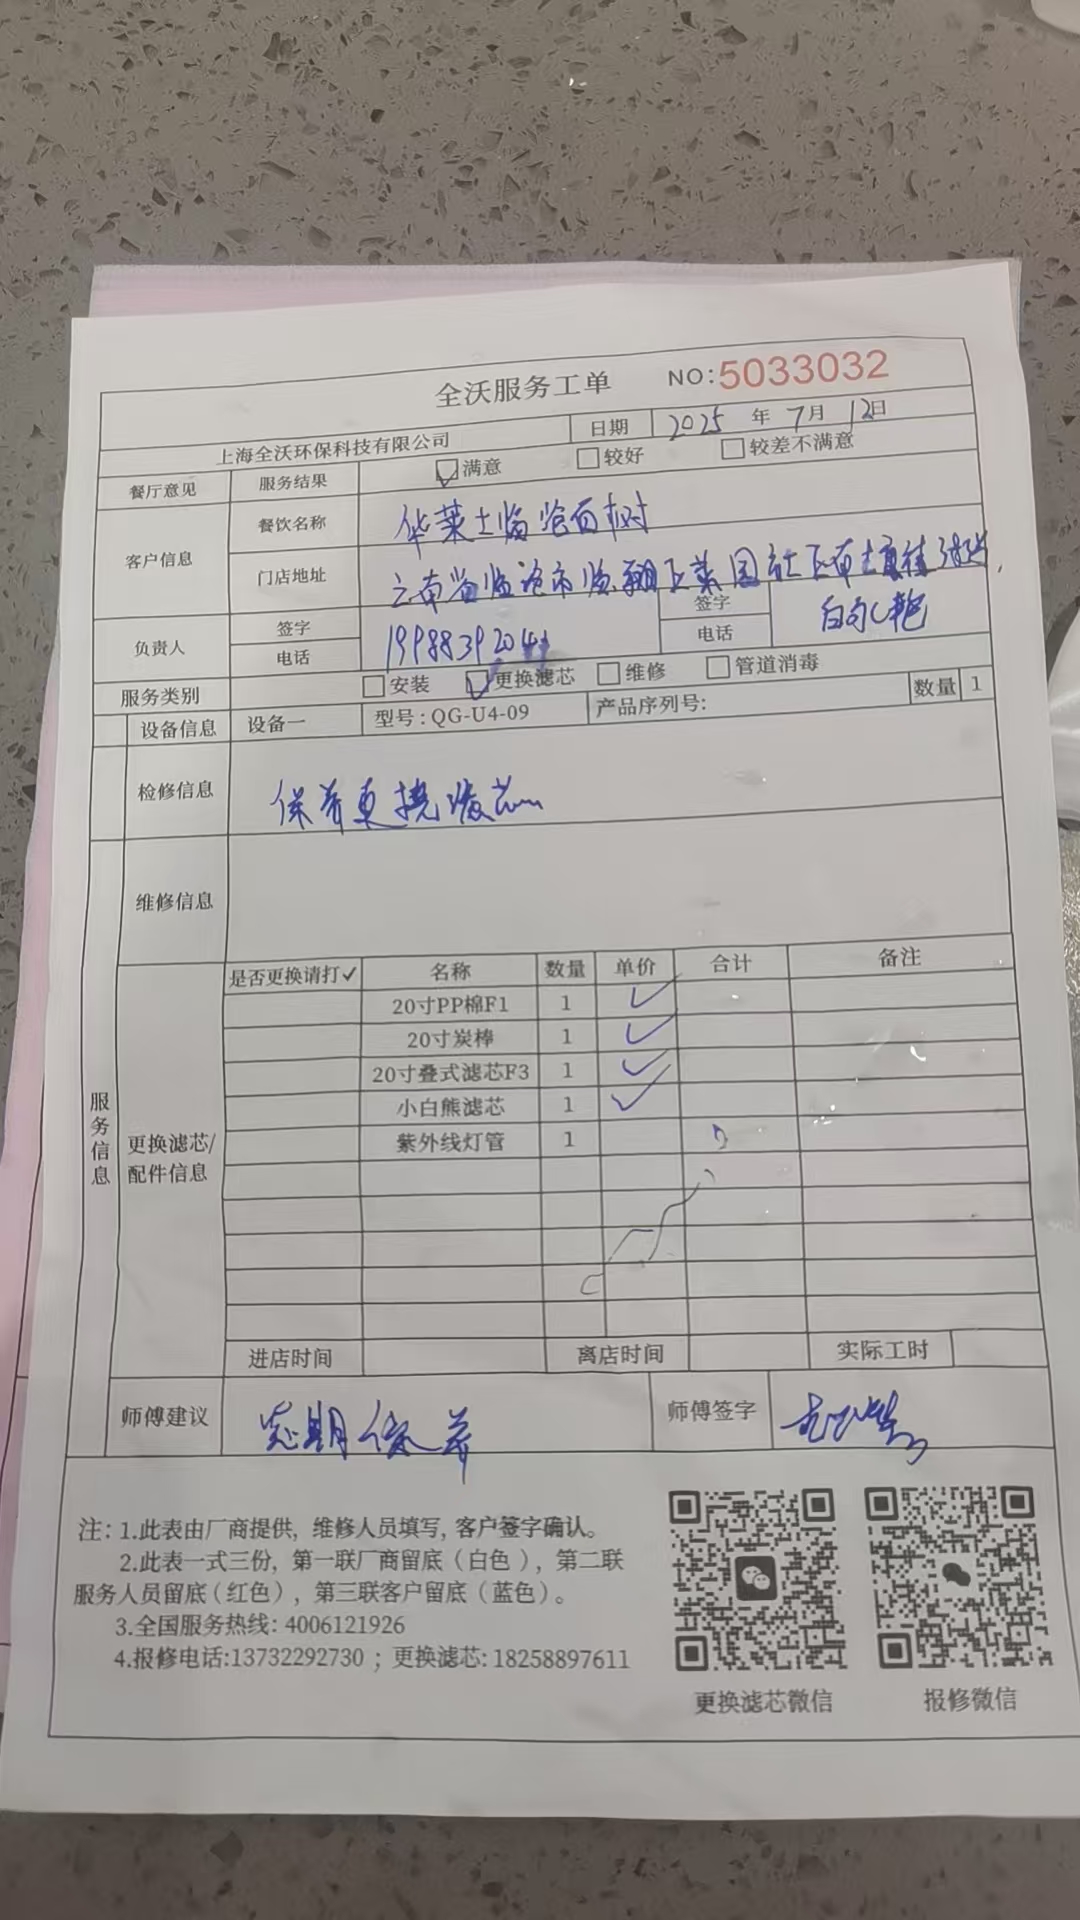 全沃服务工单 NO:5033032
上海全沃环保科技有限公司 日期 2025 年 7月 12日
餐厅意见 服务结果 满意 较好 较差不满意
客户信息 餐饮名称 华莱士临沧百树
门店地址 云南省临沧市临翔区菜园社区南
负责人 签字 签字
电话 1998839204 电话
服务类别 安装 更换滤芯 维修 管道消毒
设备信息 设备一 型号:QG-U4-09 产品序列号: 数量 1
检修信息 保养更换滤芯
维修信息
服务信息
更换滤芯/配件信息
是否更换请打✓ 名称 数量 单价 合计 备注
20寸PP棉F1 1 ✓
20寸炭棒 1 ✓
20寸叠式滤芯F3 1 ✓
小白熊滤芯 1 ✓
紫外线灯管 1
进店时间 离店时间 实际工时
师傅建议 定期保养 师傅签字
注: 1.此表由厂商提供, 维修人员填写, 客户签字确认。
2.此表一式三份, 第一联厂商留底(白色), 第二联
服务人员留底(红色), 第三联客户留底(蓝色)。
3.全国服务热线: 4006121926
4.报修电话:13732292730 ; 更换滤芯: 18258897611
更换滤芯微信 报修微信